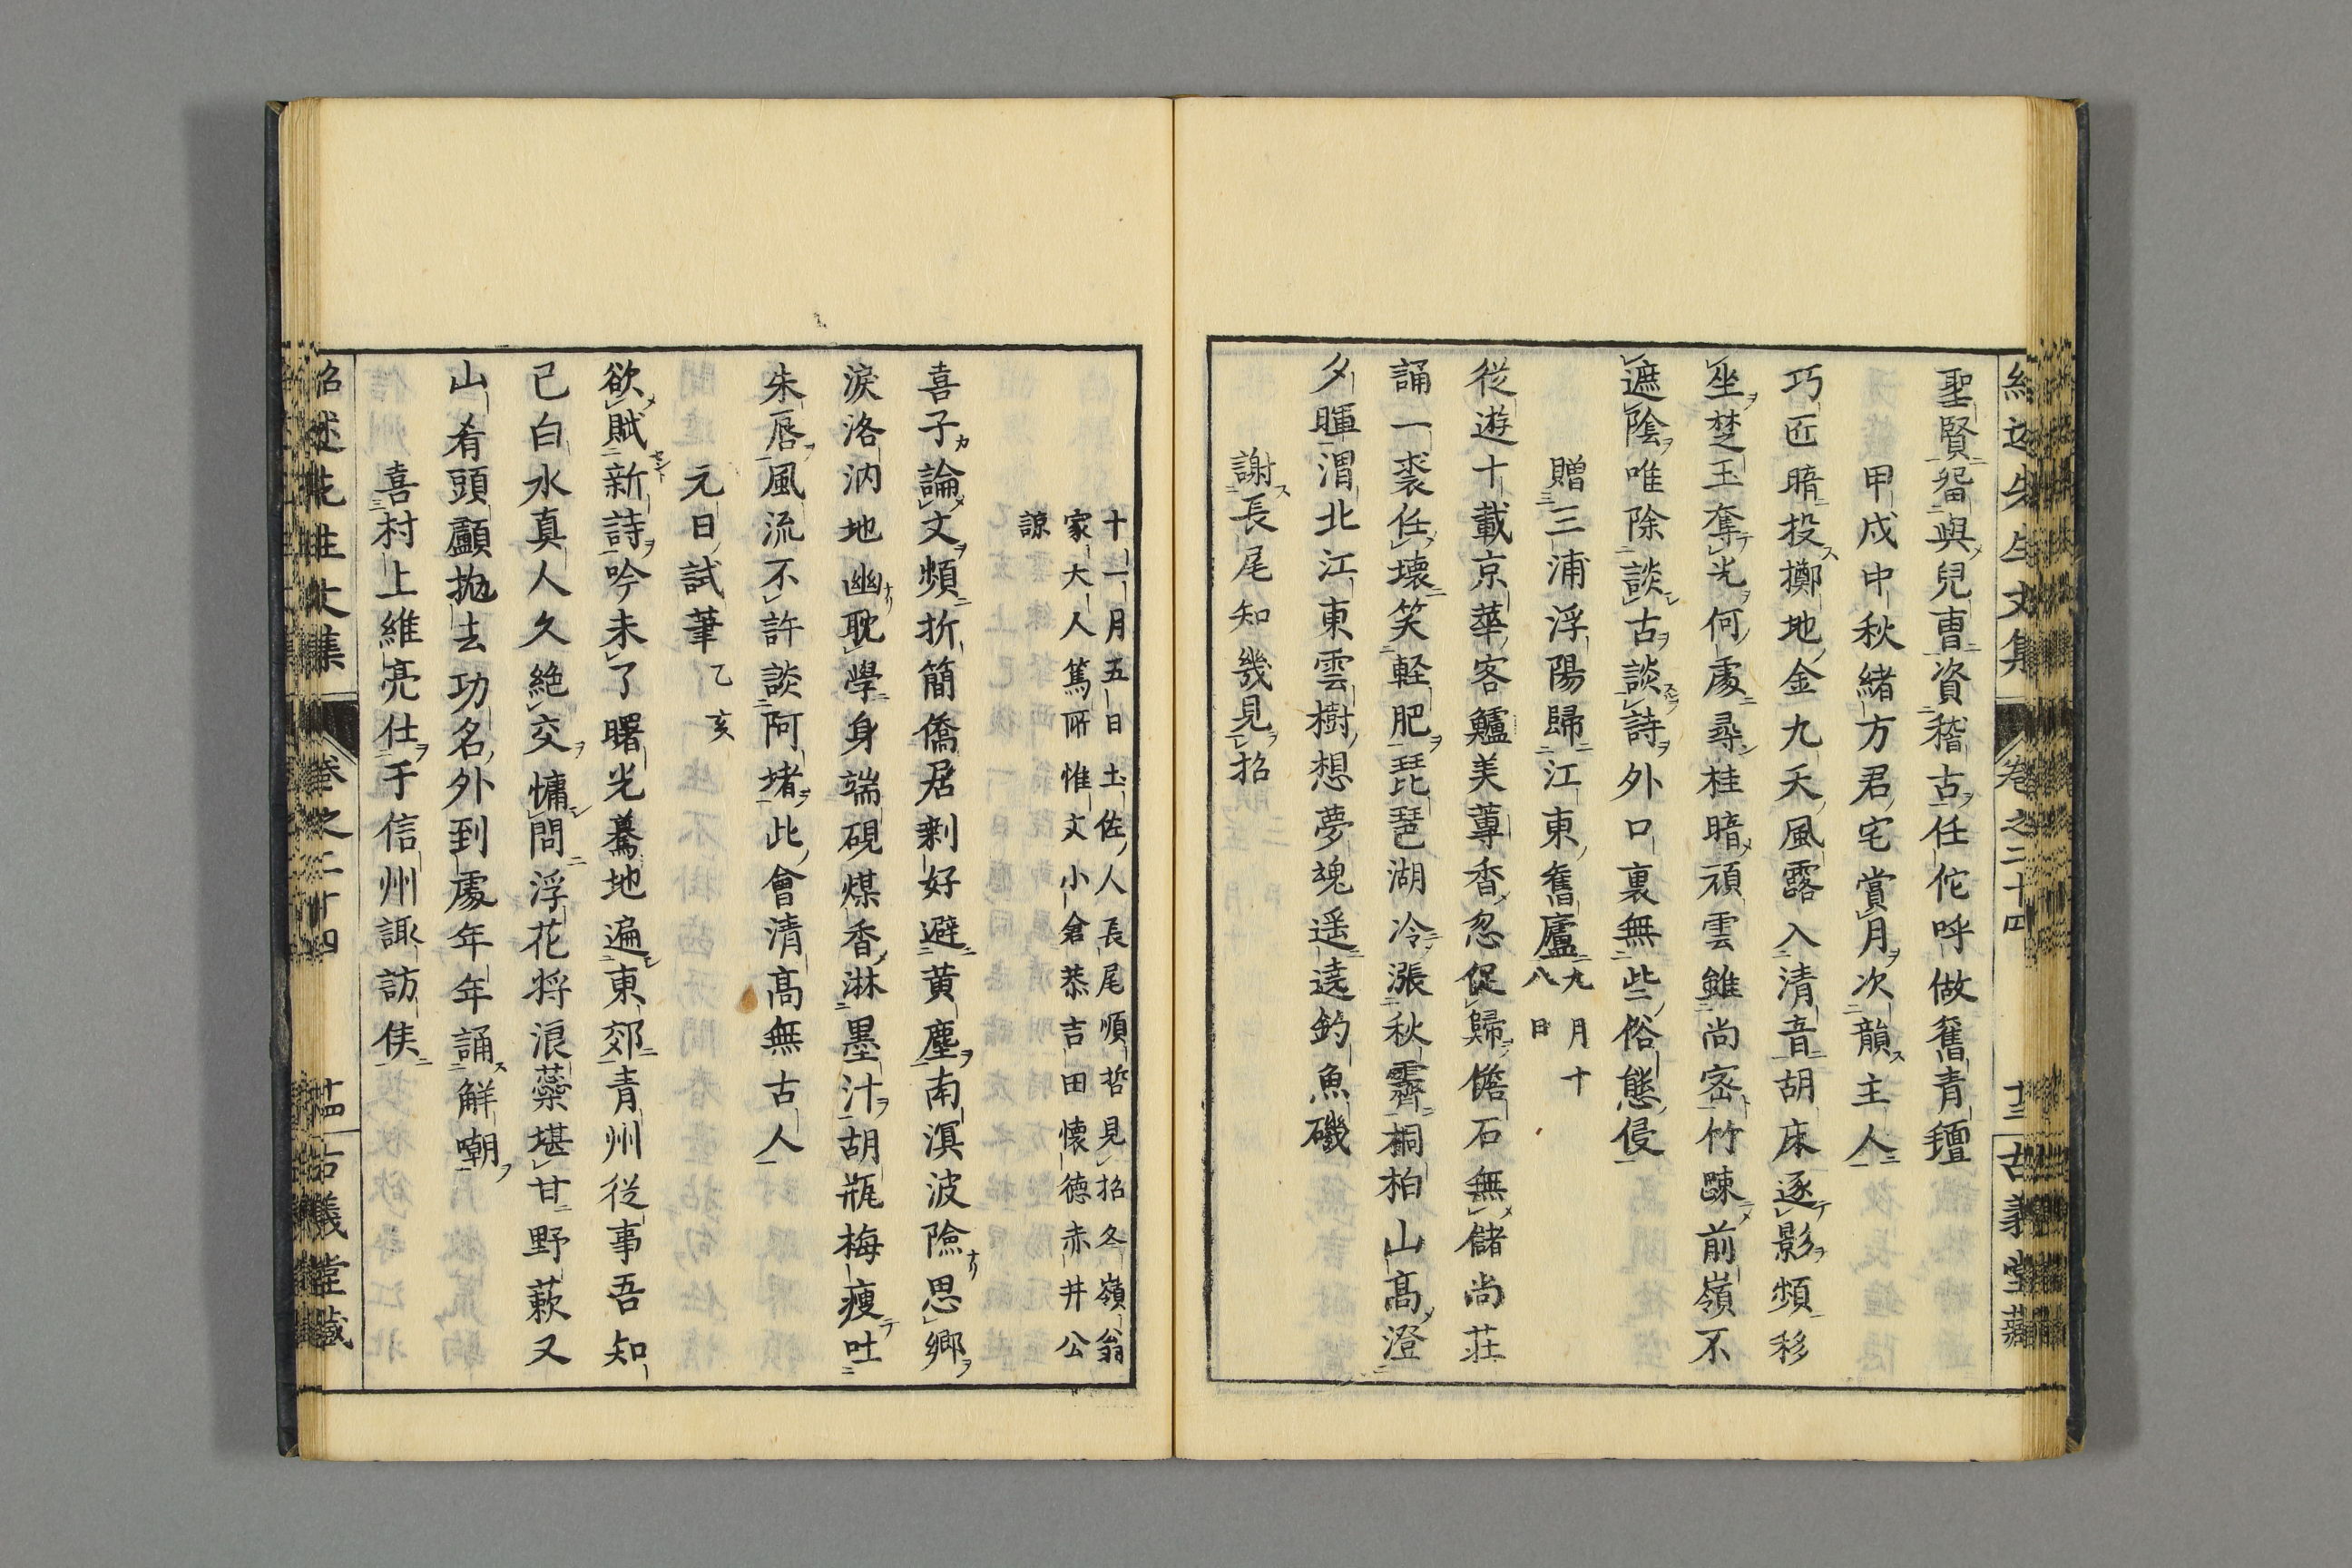 聖賢經與兒曹資稽古任佗呼做舊青氊
甲戌中秋緒方君宅賞月次韻主人
巧匠暗投擲地金九天風露入清音胡床逐影頻移
坐楚玉奪光何處尋桂暗頑雲雖尚密竹疎前嶺不
遮陰唯除談古談詩外口裏無些俗態侵
贈三浦浮陽歸江東舊廬九月十八日
從遊十載京華客鱸美蓴香忽促歸儋石無儲尚莊
誦一裘任壞笑輕肥琵琶湖冷漲秋霽桐柏山高澄
夕暉渭北江東雲樹想夢魂遥遶釣魚磯
謝長尾知幾見招
十一月五日土佐人長尾順哲見招冬嶺翁
家大人篤所惟文小倉恭吉田懐德赤井公
諒
喜子論文頻折簡僑居剩好避黄塵南溟波險思鄉
淚洛汭地幽耽學身端硯煤香淋墨汁胡瓶梅瘦吐
朱唇風流不許談阿堵此會清高無古人
元日試筆乙亥
欲賦新詩吟未了曙光驀地遍東郊青州從事吾知
己白水真人久絶交慵問浮花將浪蘂堪甘野蔌又
山肴頭顱抛去功名外到處年年誦解嘲
喜村上維亮仕于信州諏訪侯
紹述先生文集 卷之二十四 十三 古義堂藏
紹述先生文集 卷之二十四 十四 古義堂藏